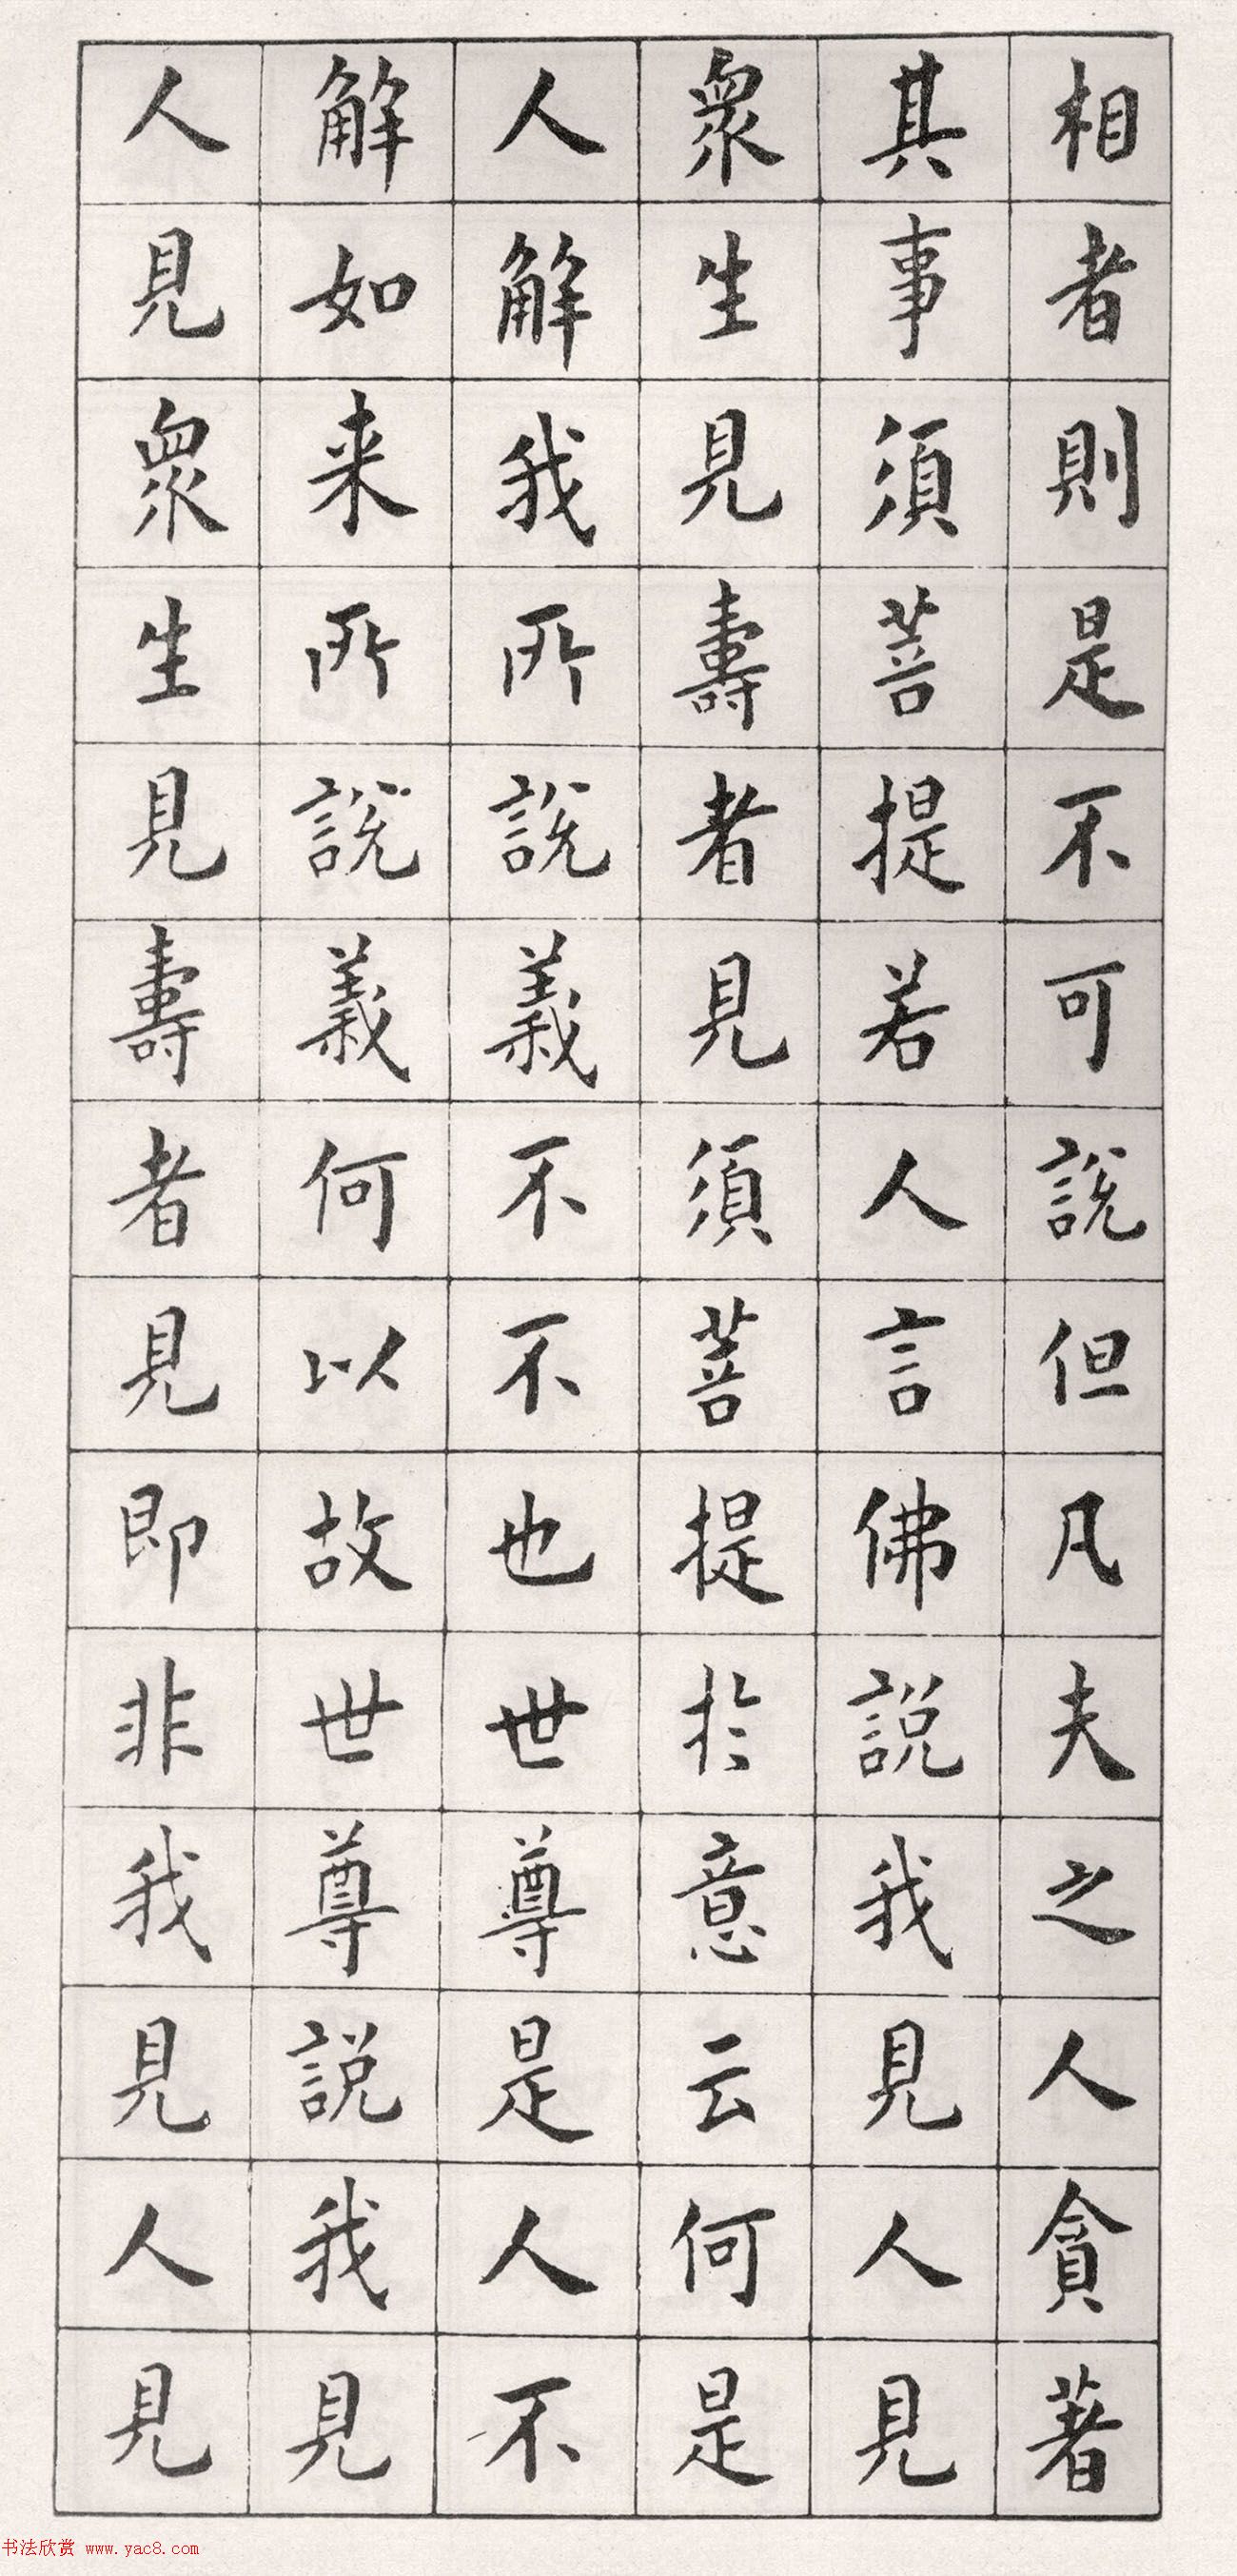 相者則是不可說但凡夫之人貪著
其事須菩提若人言佛說我見人見
衆生見壽者見須菩提於意云何是
人解我所說義不不也世尊是人不
解如来所說義何以故世尊說我見
人見衆生見壽者見即非我見人見
书法欣赏 www.yac8.com